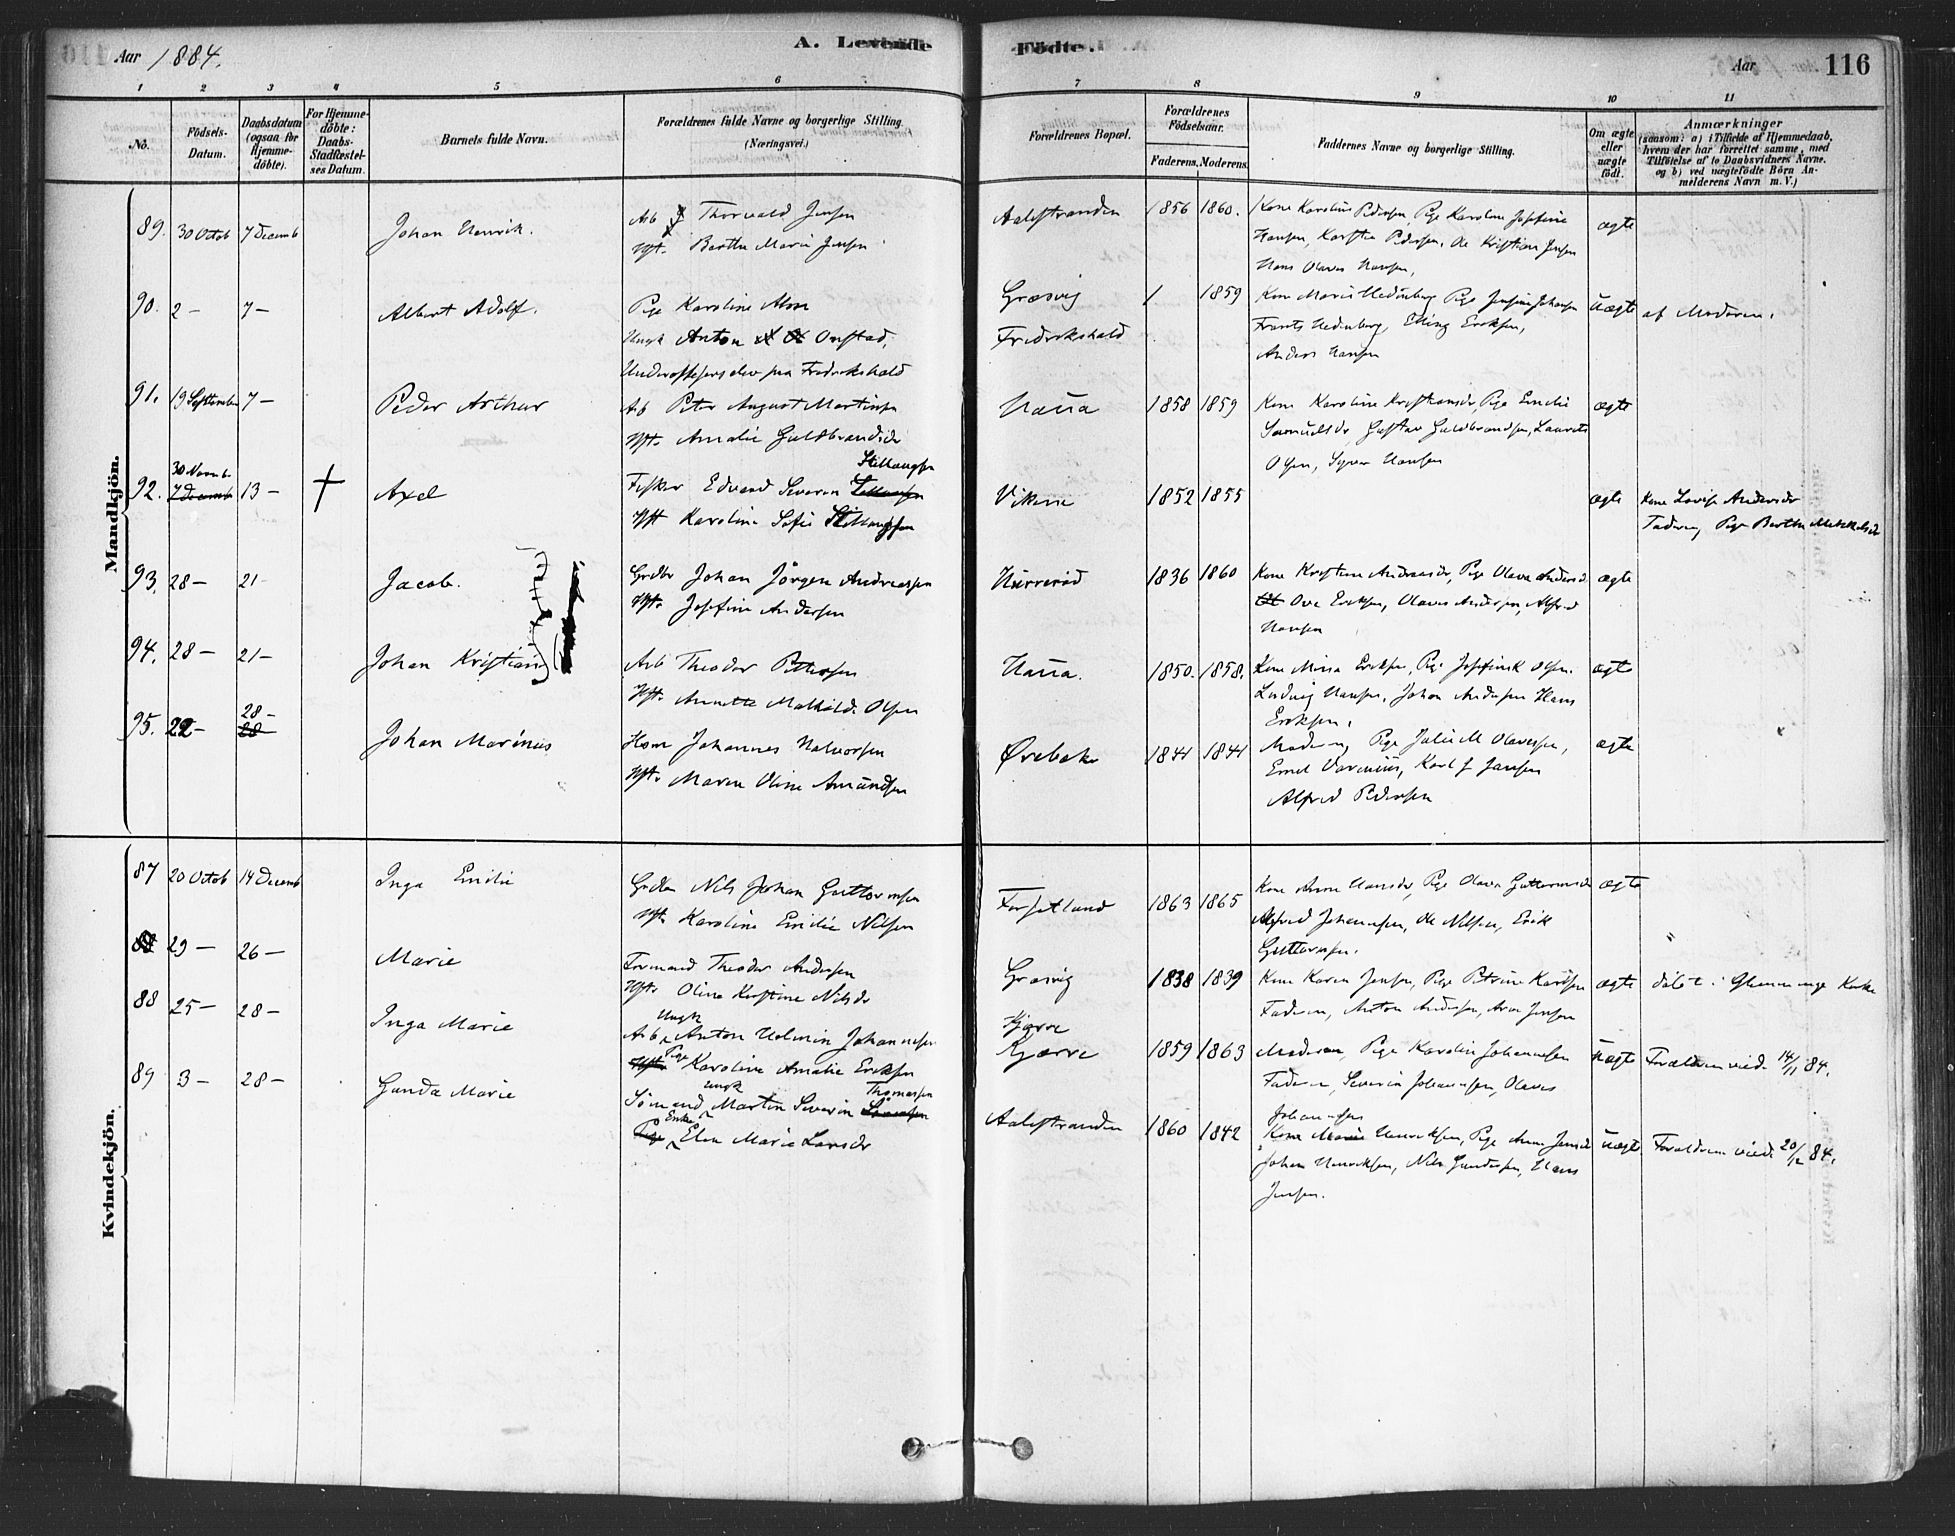 Aar 1884.
A. Levende
Födte.
Aar
116
1 2 3 4 5 6 7 8 9 10 11
No.
Födsels-
Datum.
Daabsdatum
(ogsaa for
Hjemme-
döbte).
For Hjemme-
döbte:
Daabs-
Stadfæstel-
ses Datum.
Barnets fulde Navn.
Forældrenes fulde Navne og borgerlige Stilling.
(Næringsvei.)
Forældrenes Bopæl.
Forældrenes
Födselsaar.
Faderens.
Moderens.
Faddernes Navne og borgerlige Stilling.
Om ægte
eller
uægte
födt.
Anmærkninger
(saasom: a) i Tilfælde af Hjemmedaab,
hvem der har forrettet samme, med
Tilföielse af to Daabsvidners Navne.
og b) ved uægtefödte Börn An-
melderens Navn m. V.)
Mandkjön.
89. 30 Octob 7 Decemb Johan Henrik.
Arb Thorvald Jensen
Hst. Berthe Marie Jensen
Aalestranden 1856 1860.
Kone Karoline Pedersen Pige Karoline Josefine
Hansen, Karsten Pedersen, Ole Kristian Jensen
Hans Olaves Hansen,
ægte
90. 2 – 7 – Albert Adolf.
Pige Karoline
Ungk Anton Onstad,
Underofficerselev paa Fredrikshald
Græsvig / 1859
Fredrikshald
Kone Marie Hedenberg Pige Josefine Johansen
Frants Hedenberg, Elling Eriksen,
Anders Hansen
uægte
af Moderen.
91. 19 September 7 – Peder Arthur
Arb Peter August Martinsen
Hst. Amalie Guldbrandsdr
Haua 1858 1859
Kone Karoline Kristiansdr, Pige Emilie
Samuelsdr, Gustav Guldbrandsen, Laurits
Olsen, Syver Hansen
ægte
92. 30 Novemb 7 Decemb 13 – † Axel
Fisker Edvard Severin Stillaugsen
Hst Karoline Sofie Stillaugsen
Vikene 1852 1855
ægte
Kone Lovise Andersdr
Faderen, Pige Berthe
93. 28 – 21 – Jacob.
Grdbr Johan Jörgen Andreassen
Hst. Josefine Andersen
Hurrerød 1836 1860
Kone Kristine Andreasdr, Pige Olava Andersd.
Ove Eriksen, Olaves Andersen, Alfred
Hansen
ægte
94. 28 – 21 – Johan Kristian
Arb Theodor Pettersen
Hst. Annette Mathilde Olsen
Haua. 1850. 1858.
Kone Mina Eriksen, Pige Josefine K Olsen.
Ludvig Hansen, Johan Andersen Hans
Eriksen.
ægte
95. 22 – 28 – 28 Johan Marinus
Hsm Johannes Halvorsen
Hst. Maren Oline Amundsen
Ørebæk 1841 1841
Moderen, Pige Julie M Olavesen,
Emil Varenius, Karl J Jansen
Alfred Pedersen
ægte
Kvindekjön.
87 20 Octob 14 Decemb Inga Emilie
Grdbr Nils Johan Guttormsen
Hst. Karoline Emilie Nilsen
Forsetlund 1863 1865
Kone Anne Hansdr, Pige Olava Guttormsdr
Alfred Johannesen, Ole Nilsen, Erik
Guttormsen.
ægte
29 – 26 – Marie
Formand Theodor Andersen
Hst. Oline Kristine Nilsdr
Græsvig 1838 1839
Kone Karen Jensen, Pige Petrine Karlsen
Faderen, Anton Andersen, Aron Jensen
ægte
döbt i Glemminge Kirke
88 25 – 28 – Inga Marie
Ungk
Arb. Anton Helmin Johannesen
Hst. Pige Karoline Amalie Eriksen
Kjærre
Kjærre 1859 1863
Moderen, Pige Karoline Johannesen
Faderen, Severin Johannesen, Olaves
Johannesen
uægte
Forældren viede 14/11 84.
89 3 – 28 – Gunda Marie
ungk Thomassen
Sömand Martin Severin
Enke
Pige Elen Marie Larsdr
Aalestranden 1860 1842
Kone Marie Henriksen, Pige Anne Jensdr
Johan Henriksen, Nils Gundersen, Hans
Jensen.
uægte
Forældren viede 20/12 84.